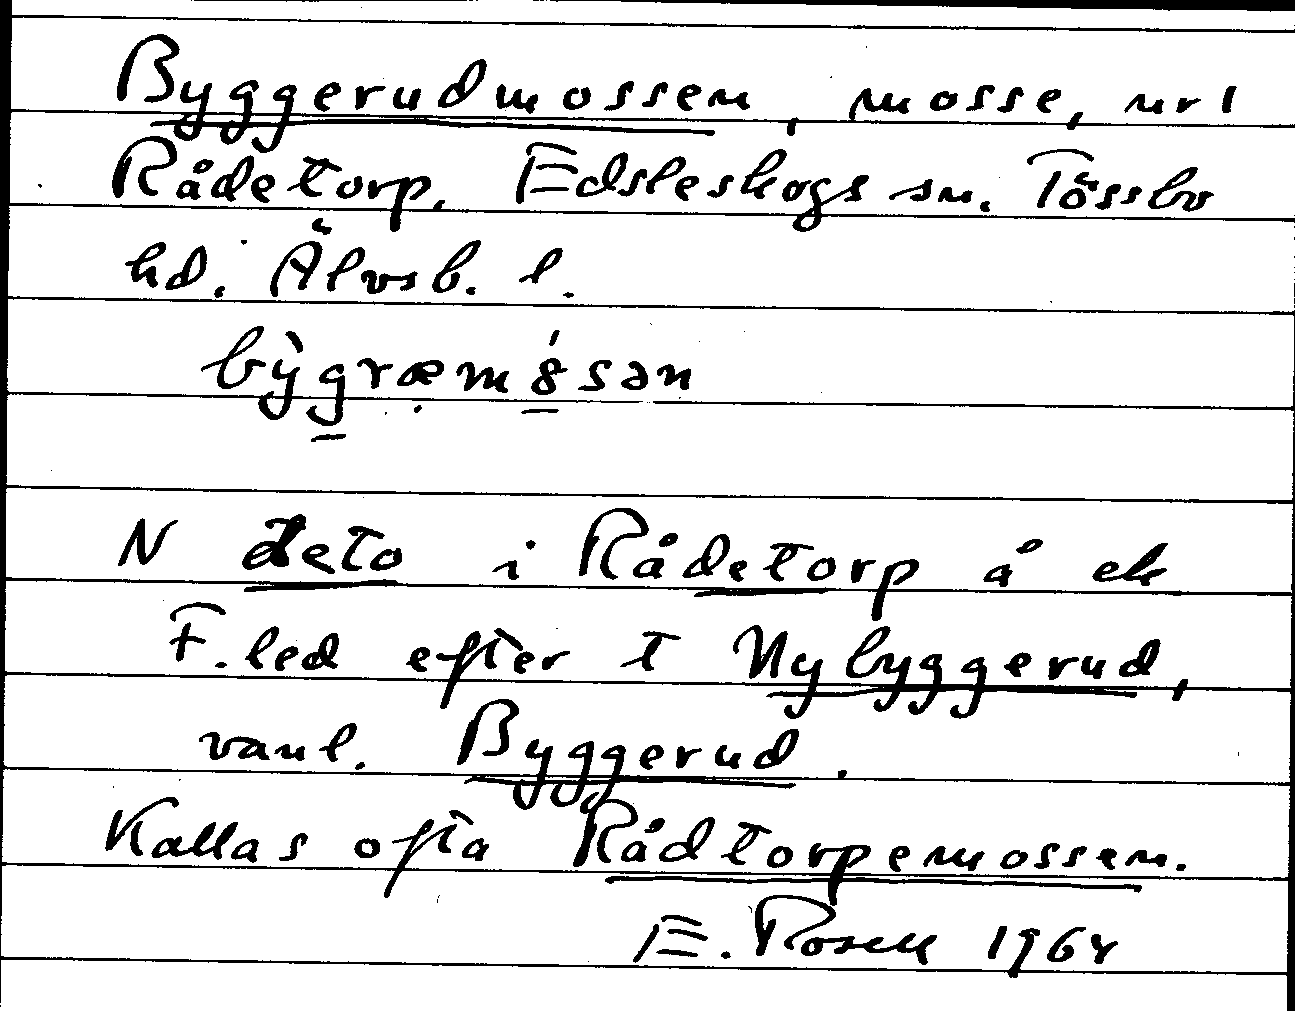 Byggerudmossen, mosse, nr 1
Rådetorp. Edsleskogs sn. Tössbo
hd. Älvsb. l.
bỳgræmósən
N deto i Rådetorp å ek
F. led efter t Nybyggerud,
vanl. Byggerud.
Kallas ofta Rådtorpemossen.
E. Rosell 1964